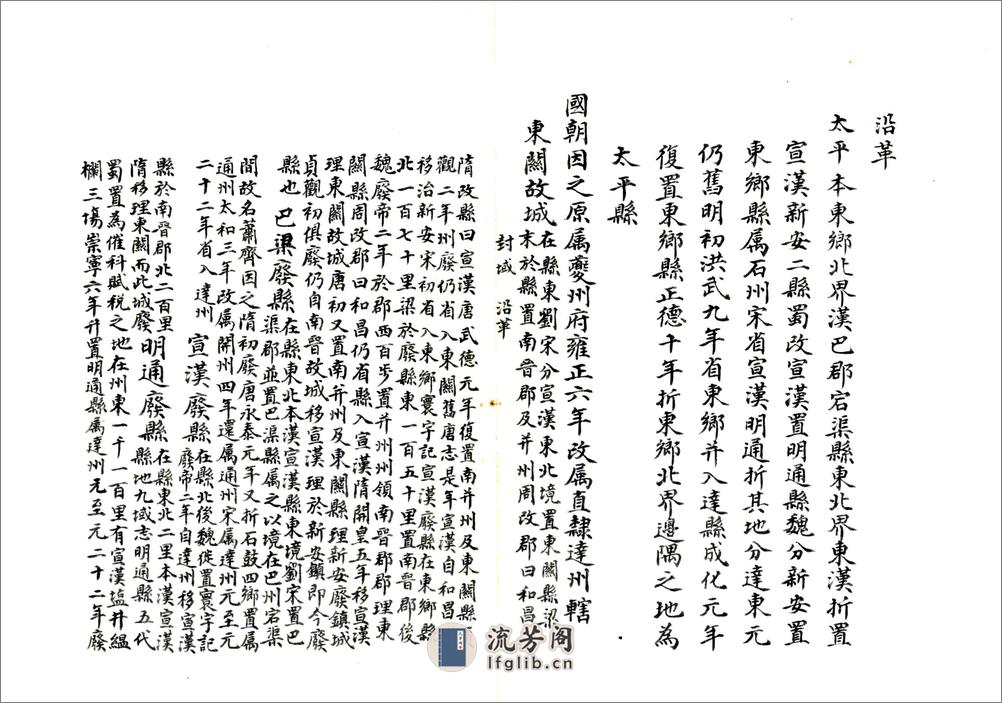 沿革
太平本東鄉北界漢巴郡宕渠縣東北界東漢折置
宣漢新安二縣蜀改宣漢置明通縣魏分新安置
東鄉縣属石州宋省宣漢明通折其地分達東元
仍舊明初洪武九年省東鄉并入達縣成化元年
復置東鄉縣正德十年折東鄉北界邊隅之地為
太平縣
國朝因之原属夔州府雍正六年改属直隸達州轄
東關故城在縣東劉宋分宣漢東北境置東關縣梁
末於縣置南晉郡及并州周改郡曰和昌
封域 沿革
隋改縣曰宣漢唐武德元年復置南并州及東關縣
觀二年州廢仍省入東關舊唐志是年宣漢自和昌
移治新安宋初省入東鄉寰宇記宣漢廢縣在東鄉縣
北一百七十里梁於廢縣東一百五十里置南晉郡後
魏廢帝二年於郡西百步置并州州領南晉郡郡理東
關縣周改郡曰和昌仍省縣入宣漢隋開皇五年移宣漢
理東關故城唐初又置南并州及東關縣理新安廢鎮城
貞觀初俱廢仍自南晉故城移宣漢理於新安鎮即今廢
縣也 巴梁廢縣在縣東北本漢宣漢縣東境劉宋置巴
渠郡並置巴渠縣属之以境在巴州宕渠
間故名蕭齊因之隋初廢唐永泰元年又折石鼓四鄉置属
通州太和三年改属開州四年還属通州宋属達州元至元
二十二年省入達州 宣漢廢縣在縣北後魏徙置寰宇記
廢帝二年自達州移宣漢
縣於南晉郡北二百里
隋移理東關而此城廢 明通廢縣在縣東北二里本漢宣漢
縣地九域志明通縣五代
蜀置為催科賦税之地在州東一千一百里有宣漢塩井緼
欄三塲崇寧六年升置明通縣属達州元至元二十二年廢
流芳阁
lfglib.cn